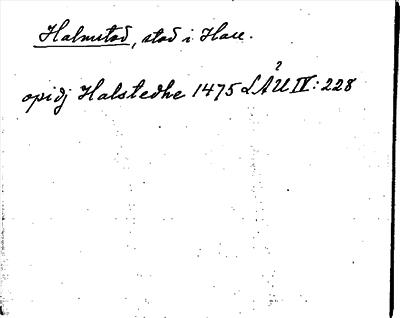 Halmstad, stad i Hall.
opidj Halstedhe 1475 LÅU IV: 228
?